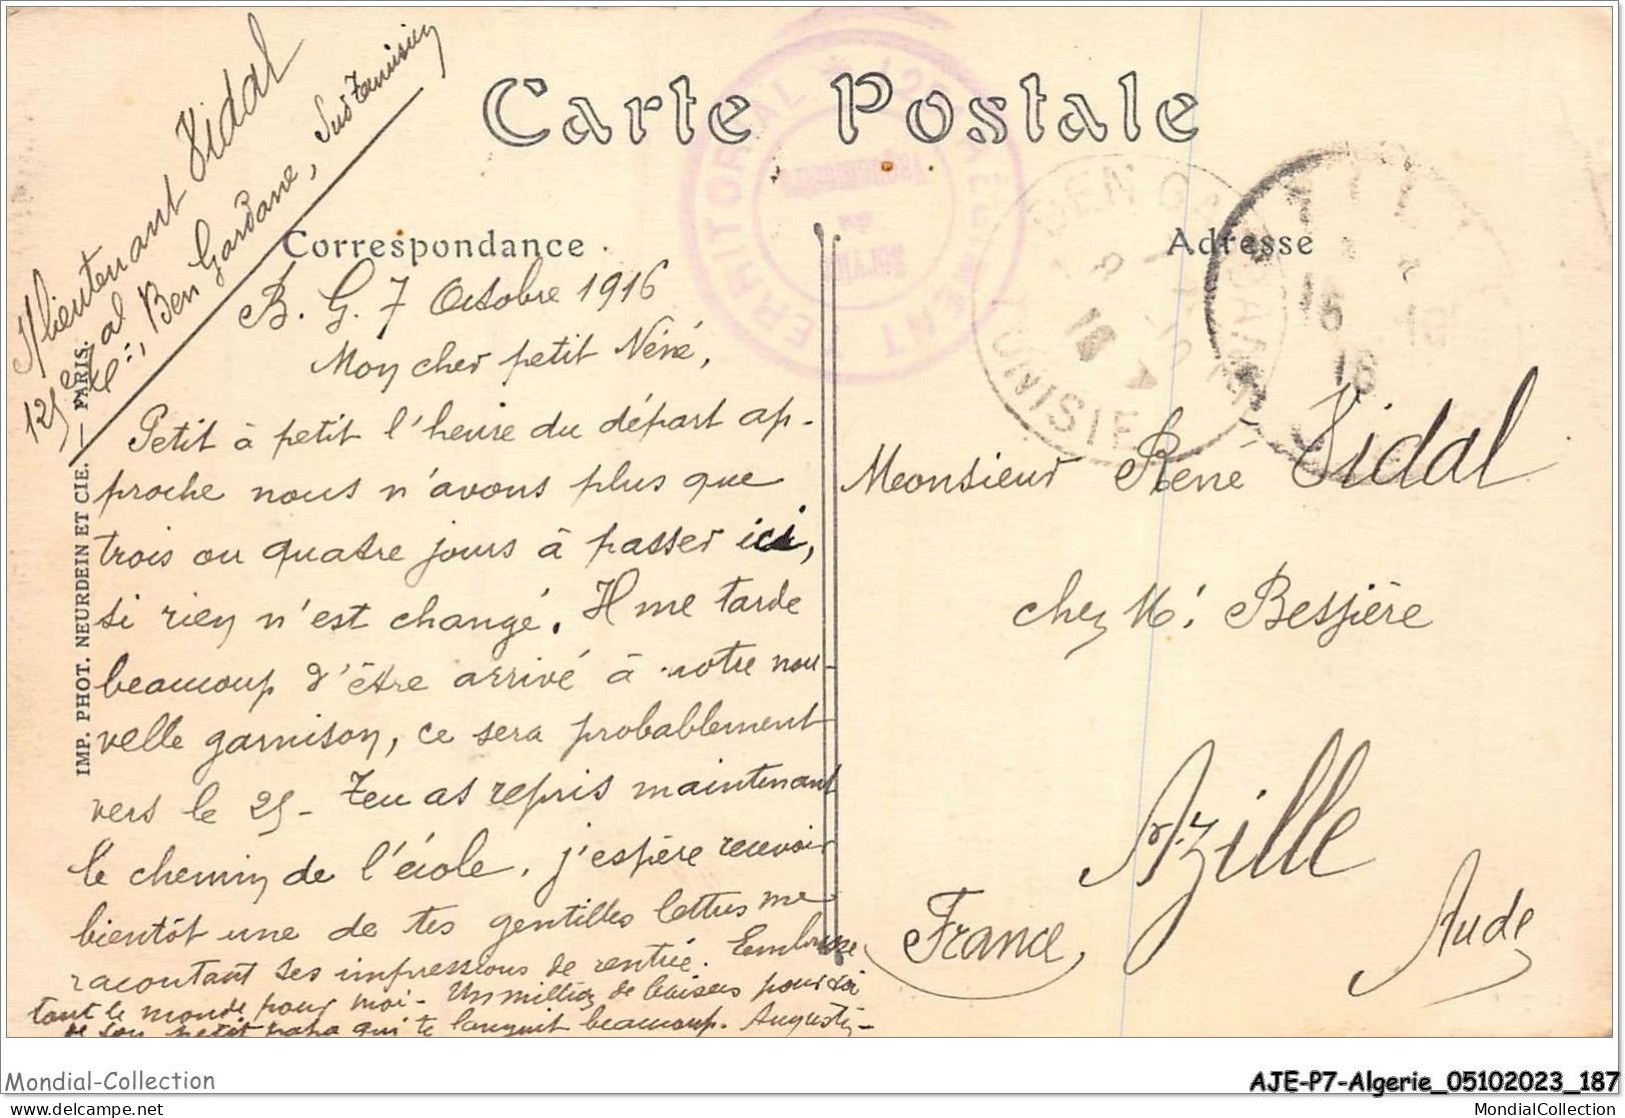 Carte Postale
Correspondance
Adresse
IMP. PHOT. NEURDEIN ET CIE. — PARIS.
lieutenant Vidal
125e tal
Cie, Ben Gardane, Sud Tunisien
B. G. 7 Octobre 1916
Mon cher petit Néné,
Petit à petit l'heure du départ ap-
proche nous n'avons plus que
trois ou quatre jours à passer ici,
si rien n'est changé. Il me tarde
beaucoup d'être arrivé à notre nou-
velle garnison, ce sera probablement
vers le 25 - Tu as repris maintenant
le chemin de l'école. J'espère recevoir
bientôt une de tes gentilles lettres me
racontant tes impressions de rentrée. Embrasse
tout le monde pour moi - Un million de baisers pour toi
de ton petit papa qui te languit beaucoup. Augustin
Monsieur René Vidal
chez Mr Bessière
Azille
France, Aude
TERRITORIAL
BEN GARDANE
TUNISIE
16
16
Mondial-Collection
AJE-P7-Algerie_05102023_187
MondialCollection.com
MondialCollection.com